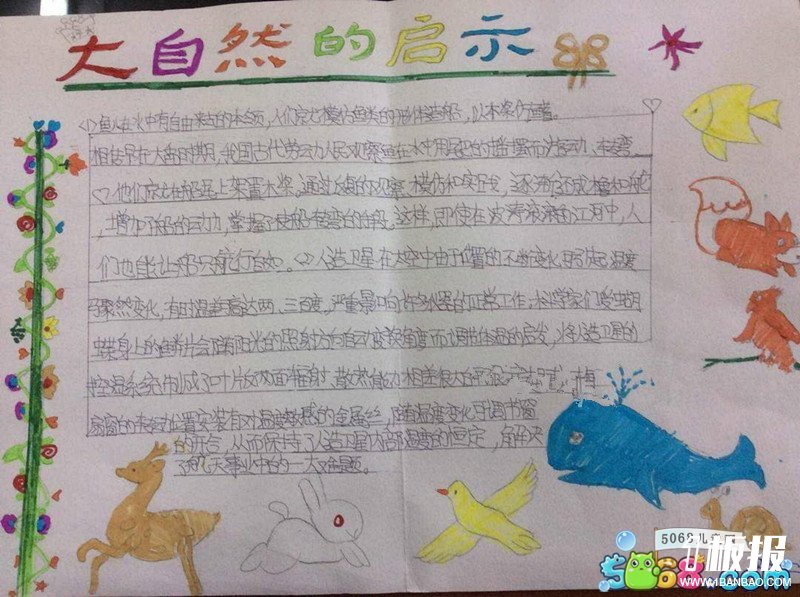 大自然的启示
<1>鱼儿在水中有自由来去的本领,人们就模仿鱼类的形体造船,以木桨仿鳍。
相传早在大禹时期,我国古代劳动人民观察鱼在水中用尾巴的摇摆而游动、转弯
<2>他们就在船尾上架置木桨。通过反复的观察、模仿和实践,逐渐改成橹和舵
,增加了船的动力,掌握了使船转弯的手段。这样,即使在波涛滚滚的江河中,人
们也能让船只航行自如。<3>人造卫星在太空中由于位置的不断变化可引起温度
骤然变化,有时温差高达两、三百度,严重影响许多仪器的正常工作。科学家们受蝴
蝶身上的鳞片会随阳光的照射方向自动变换角度而调节体温的启发,将人造卫星的
控温系统制成了叶片正反两面辐射、散热能力相差很大的百叶窗样式,在每
扇窗的转动位置安装有对温度敏感的金属丝,随着温度变化可调节窗
的开合,从而保持了人造卫星内部温度的恒定,解决
了航天事业中的一大难题。
5068儿
板报
5068.com
WWW.1BANBAO.COM